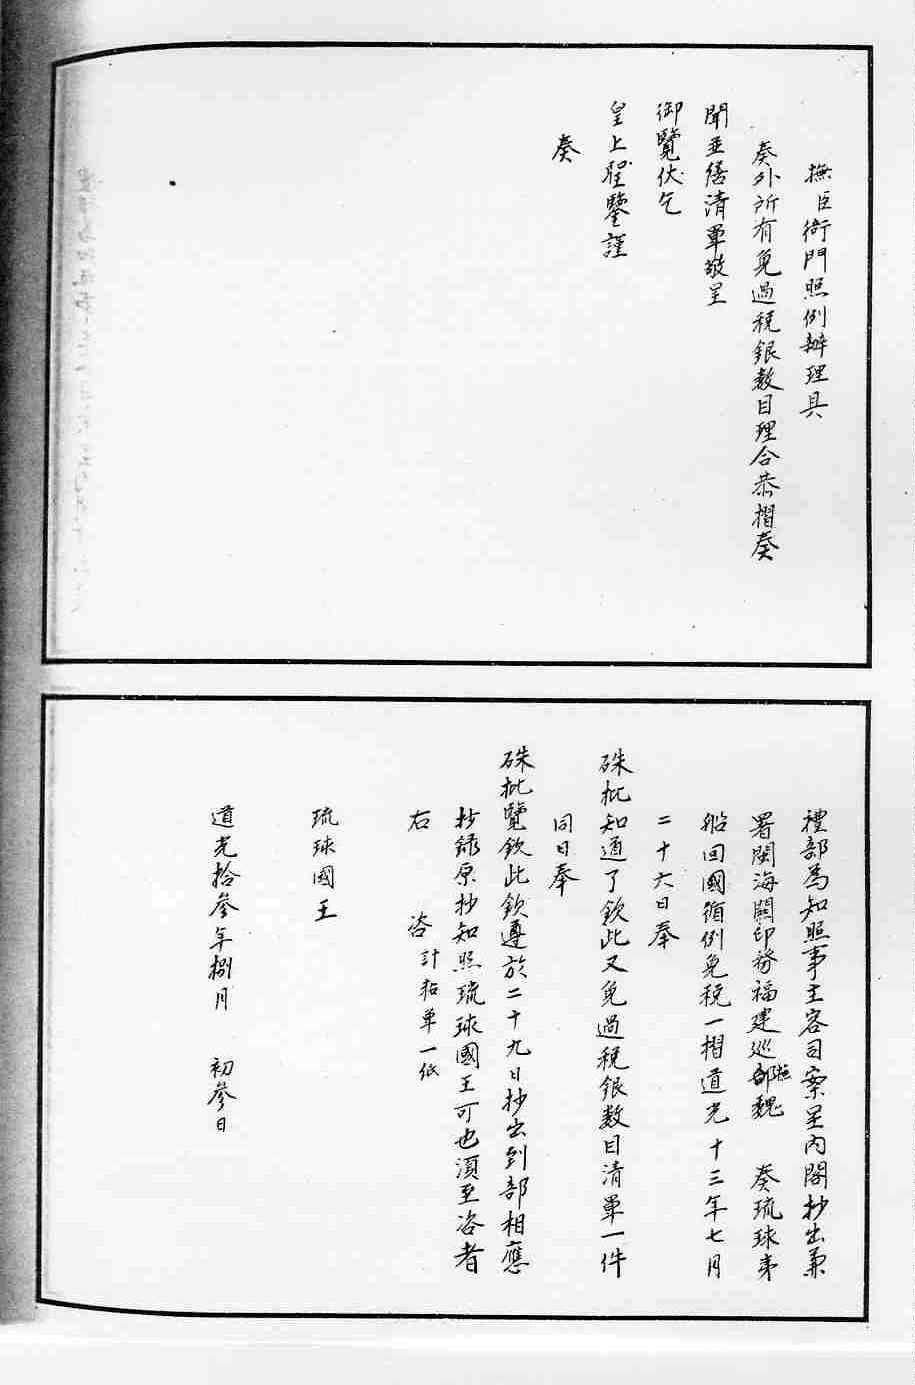 撫臣衙門照例辦理具
奏外所有免過稅銀數目理合恭摺奏
聞並繕清單敬呈
御覽伏乞
皇上聖鑒謹
奏
禮部為知照事主客司案呈內閣抄出兼
署閩海關印務福建巡撫部魏 奏琉球來
船回國循例免稅一摺道光十三年七月
二十六日奉
硃批知道了欽此又免過稅銀數目清單一件
同日奉
硃批覽欽此欽遵於二十九日抄出到部相應
抄錄原抄知照琉球國王可也須至咨者
右 咨 計粘單一紙
琉球國王
道光拾參年捌月 初參日